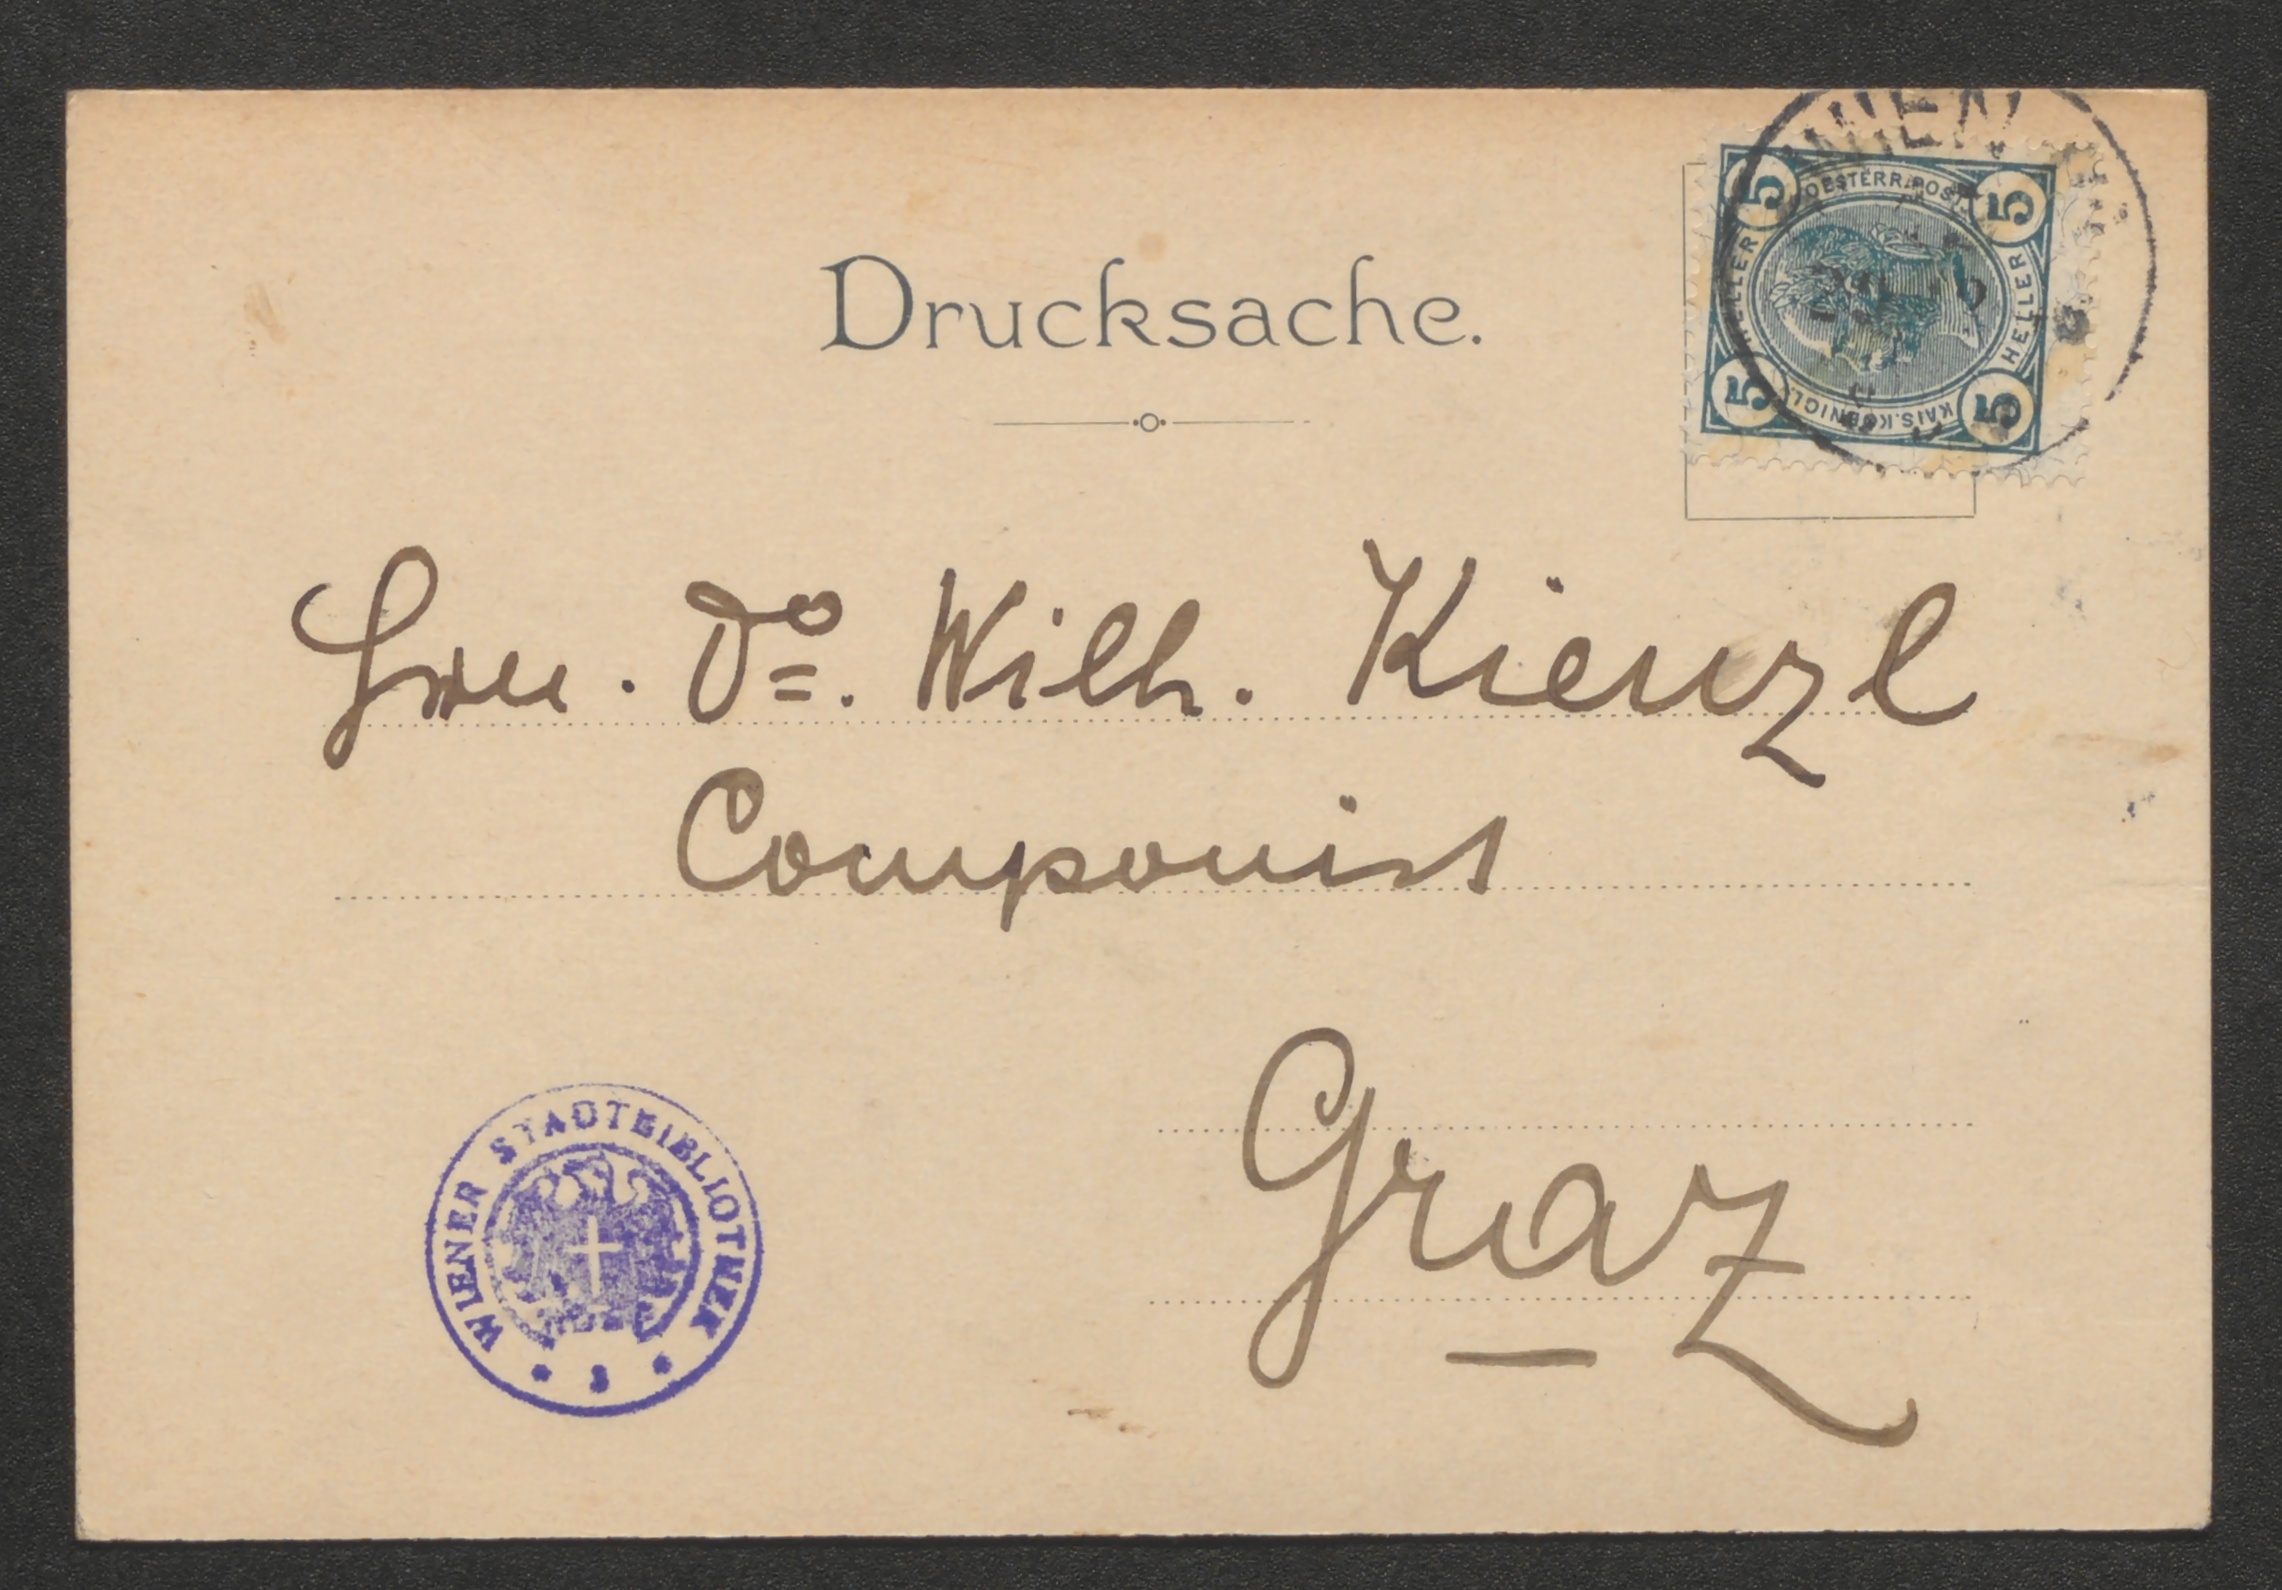 WIEN
5 OESTERR. POST. 5
HELLER HELLER
5 KAIS. KÖNIGL. 5
Drucksache.
Hrn. Dr. Wilh. Kienzl
Componist
Graz
WIENER STADTBIBLIOTHEK